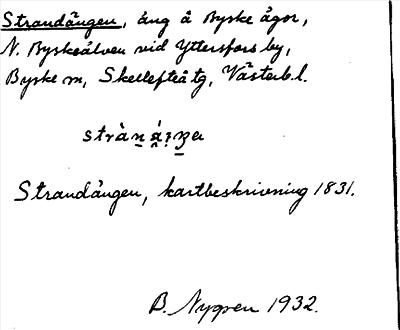 Strandängen, äng å Byske ägor,
N. Byskeälven vid Ytterfors by,
Byske sn, Skellefteå tg, Västerb. l.
Strandängen, kartbeskrivning 1831.
B. Nygren 1932.